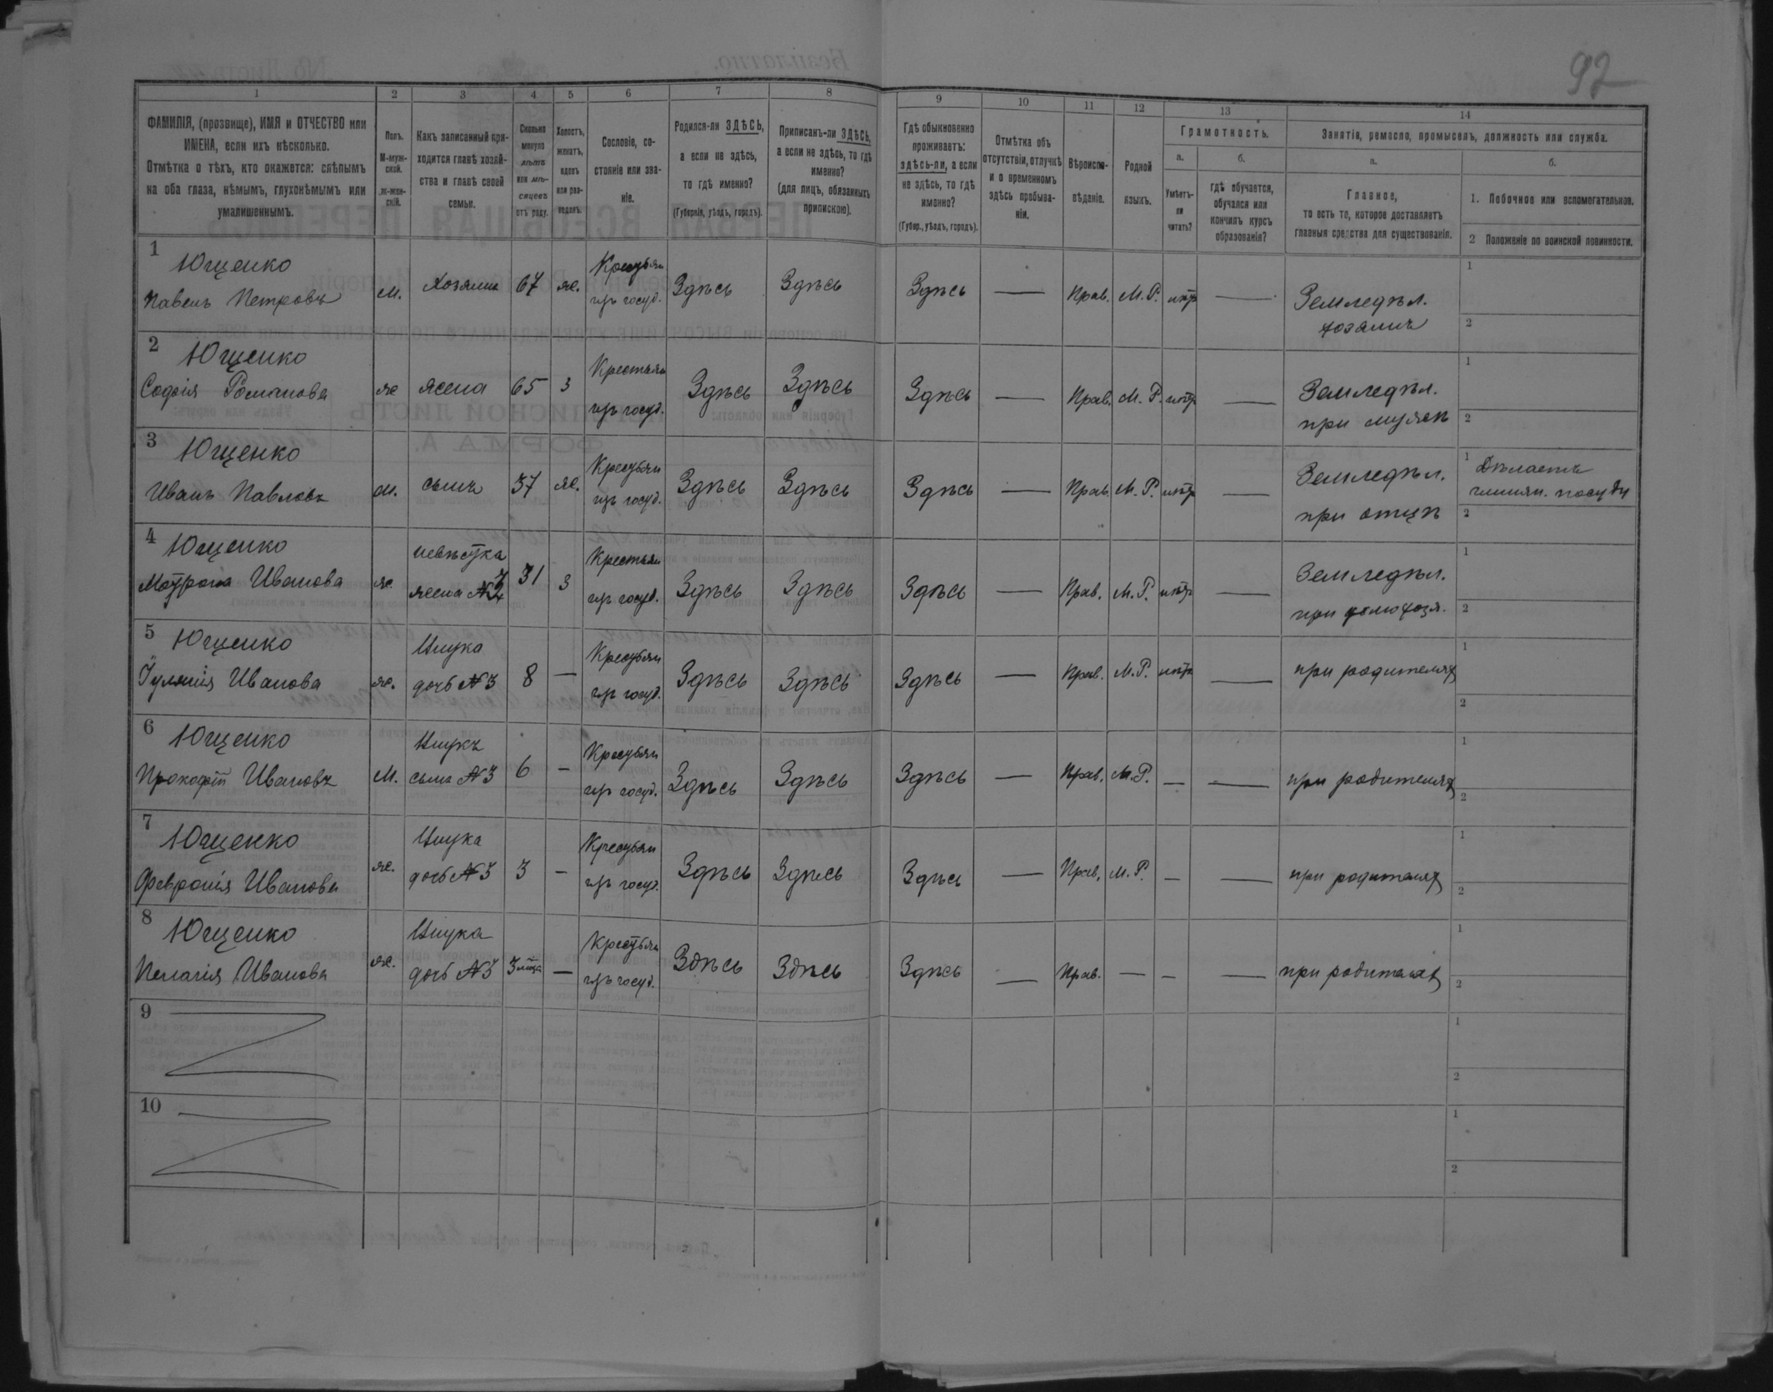 92
1 2 3 4 5 6 7 8 9 10 11 12 13 14
ФАМИЛІЯ, (прозвище), ИМЯ и ОТЧЕСТВО или
ИМЕНА, если ихъ нѣсколько.
Отмѣтка о тѣхъ, кто окажется: слѣпымъ
на оба глаза, нѣмымъ, глухонѣмымъ или
умалишеннымъ.
Полъ.
М-муж-
ской.
ж-жен-
скій.
Какъ записанный при-
ходится главѣ хозяй-
ства и главѣ своей
семьи.
Сколько
минуло
лѣтъ
или мѣ-
сяцевъ
отъ роду.
Холостъ,
женатъ,
вдовъ
или раз-
веденъ.
Сословіе, со-
стояніе или зва-
ніе.
Родился-ли ЗДѢСЬ,
а если не здѣсь,
то гдѣ именно?
(Губернія, уѣздъ, городъ).
Приписанъ-ли ЗДѢСЬ,
а если не здѣсь, то гдѣ
именно?
(для лицъ, обязанныхъ
припискою).
Гдѣ обыкновенно
проживаетъ:
здѣсь-ли, а если
не здѣсь, то гдѣ
именно?
(Губер., уѣздъ, городъ).
Отмѣтка объ
отсутствіи, отлучкѣ
и о временномъ
здѣсь пребыва-
ніи.
Вѣроиспо-
вѣданіе.
Родной
языкъ.
Грамотность.
а.
Умѣетъ-
ли
читать?
б.
гдѣ обучается,
обучался или
кончилъ курсъ
образованія?
Занятіе, ремесло, промыселъ, должность или служба.
а.
Главное,
то есть то, которое доставляетъ
главныя средства для существованія.
б.
1. Побочное или вспомогательное.
2 Положеніе по воинской повинности.
1 Ющенко
Павелъ Петровъ
м. Хозяинъ 67 же.
Крестьян
изъ госуд.
Здѣсь Здѣсь Здѣсь — Прав. М.Р. нѣтъ —
Земледѣл.
хозяинъ
1
2
2 Ющенко
Софія Романова
же жена 65 з
Крестьян
изъ госуд.
Здѣсь Здѣсь Здѣсь — Прав. М.Р. нѣтъ —
Земледѣл.
при мужѣ
1
2
3 Ющенко
Иванъ Павловъ
м. сынъ 37 же.
Крестьян
изъ госуд.
Здѣсь Здѣсь Здѣсь — Прав. М.Р. нѣтъ —
Земледѣл.
при отцѣ
1 Дѣлаетъ
глинян. посуду
2
4 Ющенко
Мотрона Иванова
же. невѣстка
жена №3 31 з
Крестьян
изъ госуд.
Здѣсь Здѣсь Здѣсь — Прав. М.Р. нѣтъ —
Земледѣл.
при домохозя.
1
2
5 Ющенко
Іулянія Иванова
же. Внука
дочь №3 8 —
Крестьян
изъ госуд.
Здѣсь Здѣсь Здѣсь Прав. М.Р. нѣтъ —
при родителях
1
2
6 Ющенко
Прокофій Ивановъ
М. Внукъ
сынъ №3 6 —
Крестьян
изъ госуд.
Здѣсь Здѣсь Здѣсь — Прав. М.Р. — —
при родителях
1
2
7 Ющенко
Февронія Иванова
же. Внука
дочь №3 3 —
Крестьян
изъ госуд.
Здѣсь Здѣсь Здѣсь — Прав. М.Р. — —
при родителях
1
2
8 Ющенко
Пелагія Иванова
же. Внука
дочь №3 3 —
Крестьян
изъ госуд.
Здѣсь Здѣсь Здѣсь — Прав. — — —
при родителях
1
2
9
1
2
10
1
2